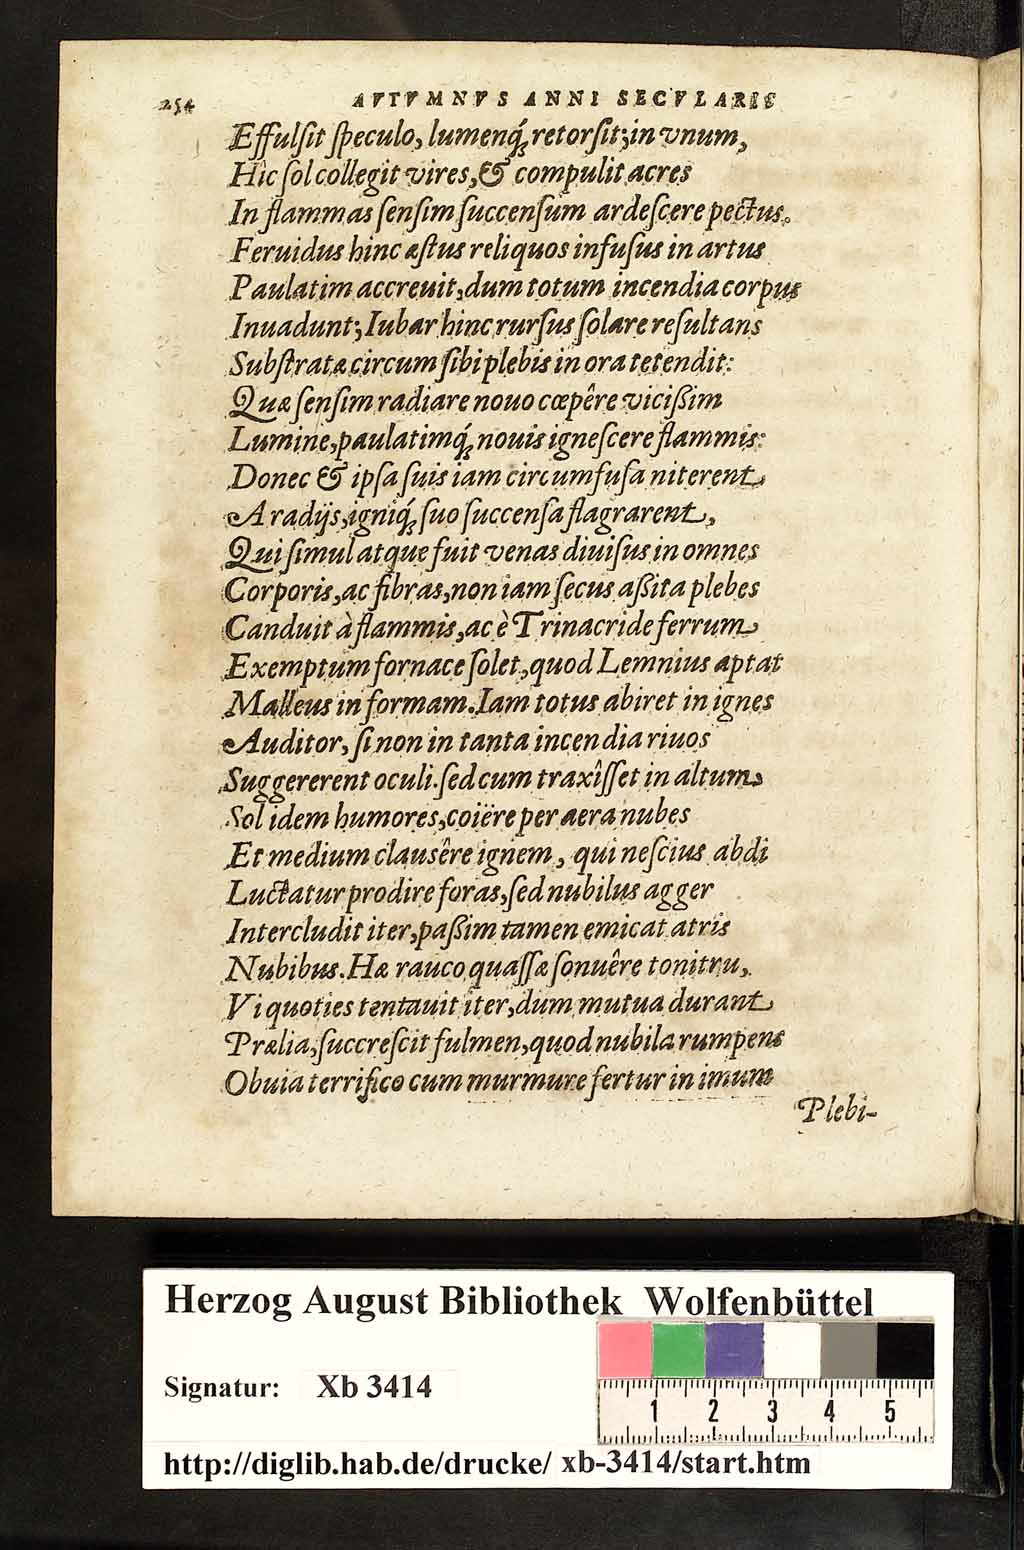 254 AVTVMNVS ANNI SECVLARIS
Effulſit ſpeculo, lumenq́; retorſit; in vnum,
Hîc ſol collegit vires, & compulit acres
In flammas ſenſim ſuccenſum ardeſcere pectus.
Feruidus hinc æſtus reliquos infuſus in artus
Paulatim accreuit, dum totum incendia corpus
Inuadunt; Iubar hinc rurſus ſolare reſultans
Subſtratæ circum ſibi plebis in ora tetendit:
Quæ ſenſim radiare nouo cœpêre viciſſim
Lumine, paulatimq́; nouis igneſcere flammis:
Donec & ipſa ſuis iam circumfuſa niterent
A radijs, igniq́; ſuo ſuccenſa flagrarent,
Qui ſimul atque fuit venas diuiſus in omnes
Corporis, ac fibras, non iam ſecus aſſita plebes
Canduit à flammis, ac è Trinacride ferrum
Exemptum fornace ſolet, quod Lemnius aptat
Malleus in formam. Iam totus abiret in ignes
Auditor, ſi non in tanta incendia riuos
Suggererent oculi. ſed cum traxîſſet in altum
Sol idem humores, coiëre per aera nubes
Et medium clauſêre ignem, qui neſcius abdi
Luctatur prodire foras, ſed nubilus agger
Intercludit iter, paſſim tamen emicat atris
Nubibus. Hæ rauco quaſſæ ſonuêre tonitru,
Vi quoties tentauit iter, dum mutua durant
Prælia, ſuccreſcit fulmen, quod nubila rumpens
Obuia terrifico cum murmure fertur in imum
Plebi-
Herzog August Bibliothek Wolfenbüttel
Signatur: Xb 3414
1 2 3 4 5
http://diglib.hab.de/drucke/ xb-3414/start.htm